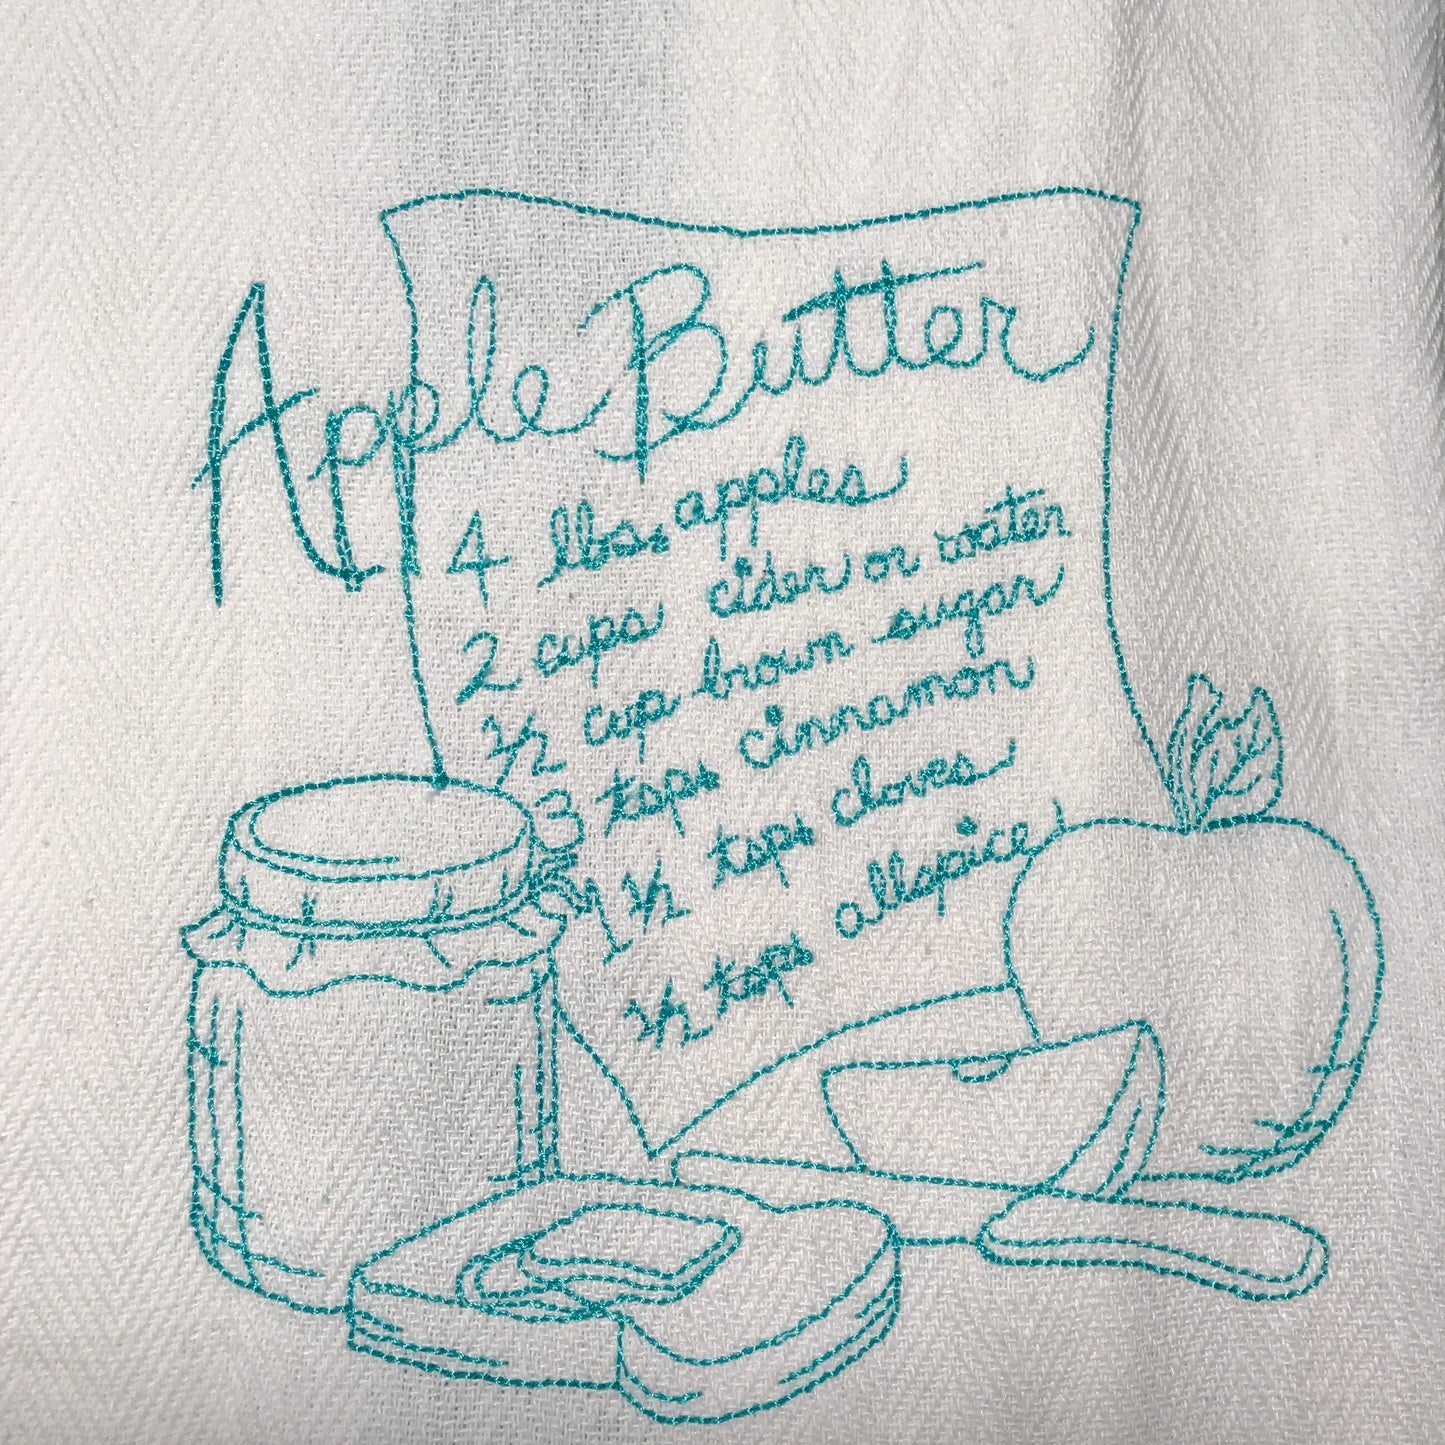 Apple Butter
4 lbs. apples
2 cups cider or water
1/2 cup brown sugar
3 tsps cinnamon
1 1/2 tsps cloves
1/2 tsps allspice